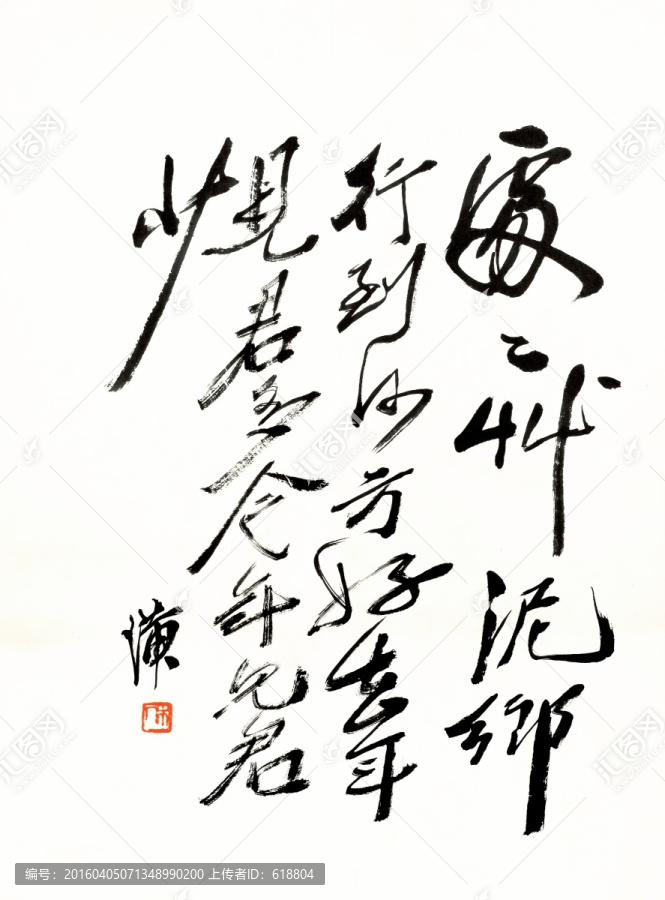 處〻艸泥鄉
行到何方好去年
見君多今年見君
少
璜
汇图网
编号：20160405071348990200 上传者ID：618804